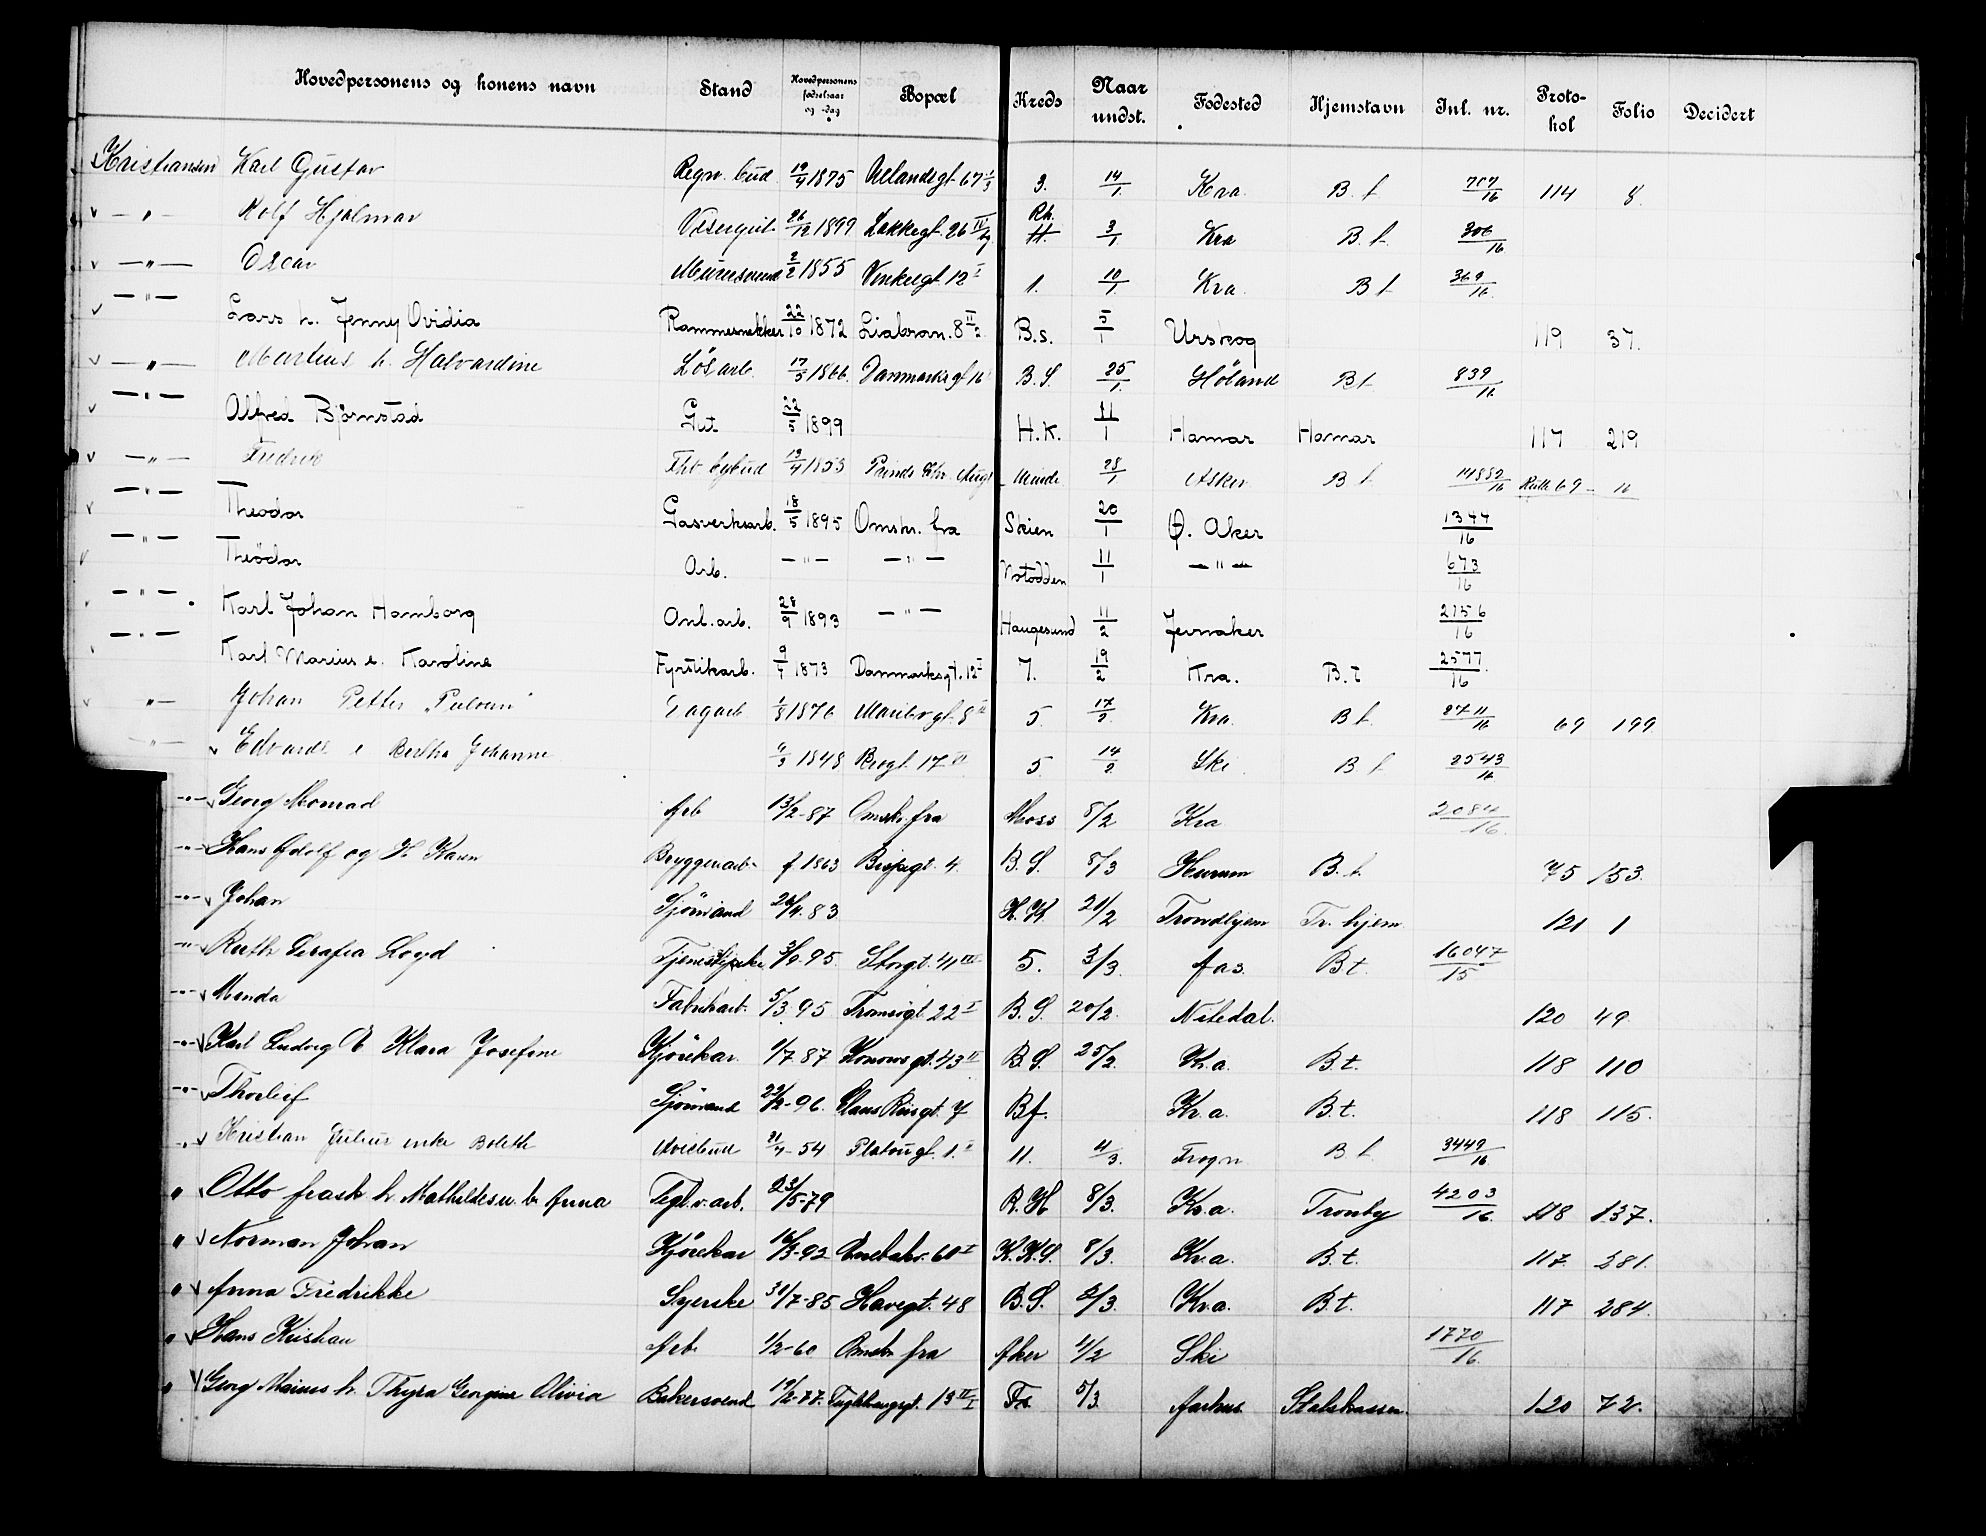 Hovedpersonens og konens navn | Stand | Hovedpersonens fødselsaar og -dag | Bopæl | Kreds | Naar undst. | Fødested | Hjemstavn | Inl. nr. | Proto-kol | Folio | Decidert
Kristiansen Karl Gustav | Regn. bud | 19/4 1875 | Uelandsgt 67 | 3. | 14/1. | Kra. | B.t. | 707/16 | 114 | 8.
— " — Rolf Hjalmar | Visergut | 26/12 1899 | Lakkegt. 26 | Rh. | 3/1 | Kra | B.t. | 306/16
— " — Oscar | Murersvend | 2/2 1855 | Vinkelgt 12 I | 1. | 10/1. | Kra. | B t | 369/16.
— " — Lars h. Jenny Ovidia | Rammesnekker | 22/10 1872 | Liabran. 8 II 2 | B.s. | 5/1 | Urskog | 119 | 37.
— " — Martius h. Halvardine | Løsarb. | 17/5 1866. | Danmarksgt 16 | B.S. | 25/1. | Høland | Bt | 839/16
— " — Alfred Bjørnstad | Gut | 22/5 1899 | H.K. | 11/1 | Hamar | Hamar | 117 | 219
— " — Fredrik | bybud | 13/4 1853 | Prinds Chr. Augt | Minde | 28/1 | Asker | B t | 14882/16 | 69 | 16
— " — Theodor | Gasverksarb. | 18/5 1895 | Omskr. fra | Skien | 20/1 | Ø. Aker | 1344/16
— " — Theodor | Arb. | — " — | — " — | Notodden | 11/1 | — " — | 673/16
— " — Karl Johan Hamborg | Anl. arb. | 28/9 1893 | — " — | Haugesund | 11/2 | Jevnaker | 2156/16
— " — Karl Marius e. Karoline | Fyrstikarb. | 9/7 1873 | Danmarksgt. 12 I | 7. | 19/2 | Kra. | B.t | 2577/16
— " — Johan Petter | Dagarb | 1/8 1876 | Maribogt 8 II | 5. | 17/2. | Kra. | B t. | 2711/16 | 69 | 199.
— " — Edvard e Bertha Johanne | 6/3 1848 | Brogt. 17 II | 5. | 14/2 | Ski | B t. | 2543/16
— " — Georg Monrad | Arb | 13/2-87 | Omskr. fra | Moss | 8/2 | Kra | 2084/16.
— " — Hans Adolf og H Karen | Bryggeriarb. | f. 1863 | Bispegt. 4. | B.S. | 8/3 | Hurum | B.t. | 75 | 153.
— " — Johan | Sjömand | 26/4. 83 | H.K | 21/2 | Trondhjem | Tr. hjem | 121 | 1
— " — Ruth Serafia Loyd | 95. | Storgt. 41 III | 5. | 3/3. | Aas. | B.t. | 16047/15
— " — Manda | Fabrikarb. | 5/3. 95 | Tromsøgt. 22 I | B.S. | 20/2. | Nitedal. | 120 | 49.
— " — Karl Ludvig E Klara Josefine | Kjörekar | 1/7 87 | Konowsgt. 43 II | B.S. | 25/2. | Kr.a. | B.t. | 118 | 110
— " — Thorleif | Sjömand | 23/2-96. | Claus Riisgt. 7 | Bf. | Kr.a. | B.t. | 118 | 115.
— " — Kristian Julius enke Boleth | Avisbud | 21/4-54 | Platougt. 1. II | 11. | 4/3. | Frogn | B t. | 3449/16
" Otto Arash h. Mathildes u. b. Anna | Tegl.v.arb. | 23/5-79 | R.H | 8/3. | Kr.a. | Tromby | 4203/16. | 118 | 137.
" Norman Johan | Kjörekar | 16/3-92 | 60 I | K.K.S. | 8/3. | Kr.a. | B.t. | 117. | 281.
" Anna Fredrikke | Syerske | 30/7-85 | Havegt. 48 | B.S. | 2/3. | Kr.a. | B.t. | 117 | 284.
" Hans Kristian | Arb. | 1/2-60 | Omskr fra | Aker | 4/2 | Ski | 1770/16.
" Georg Marius h. Thyra Georgine Olivia | Bakersvend | 19/2-77. | Fuglehaugsgt. 13 | Fr. | 5/3. | Aarhus. | Statskassen. | 120 | 72.